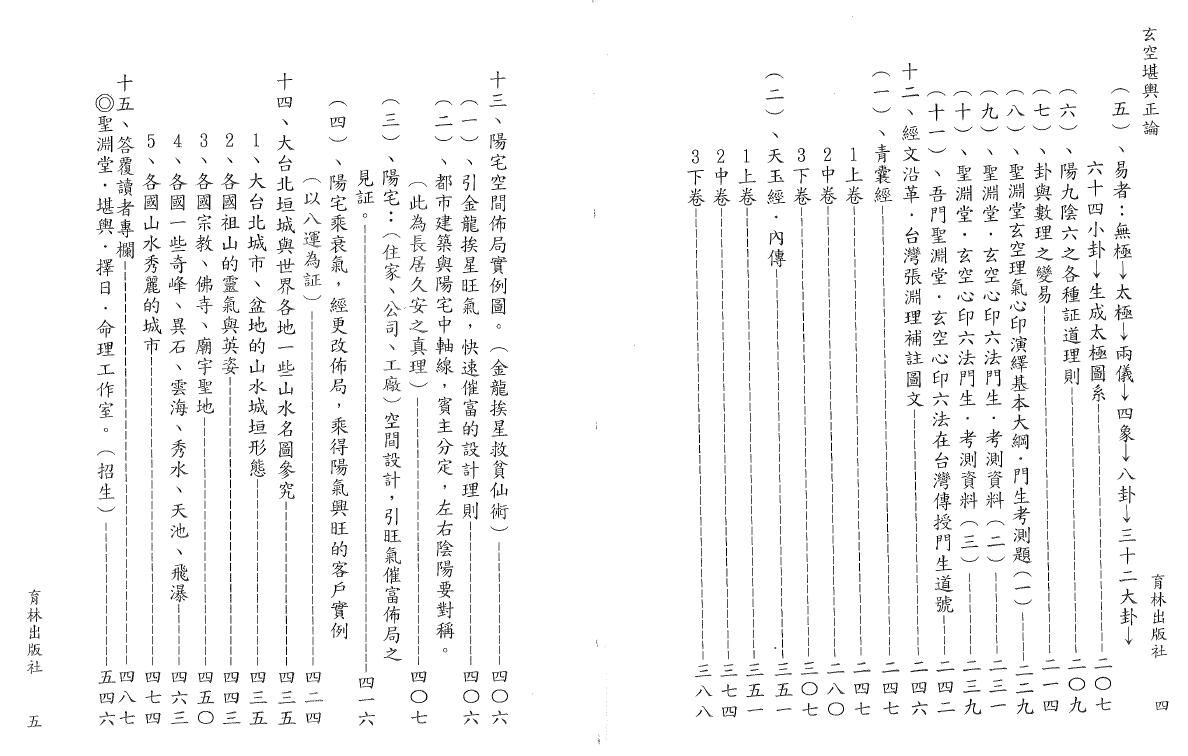 玄空堪輿正論
育林出版社
四
(五)、易者:無極→太極→兩儀→四象→八卦→三十二大卦→
六十四小卦→生成太極圖系——二〇七
(六)、陽九陰六之各種証道理則——二〇九
(七)、卦與數理之變易——二一四
(八)、聖淵堂玄空理氣心印演繹基本大綱.門生考測題(一)——二二九
(九)、聖淵堂.玄空心印六法門生.考測資料(二)——二三一
(十)、聖淵堂.玄空心印六法門生.考測資料(三)——二三九
(十一)、吾門聖淵堂.玄空心印六法在台灣傳授門生道號——二四二
十二、經文沿革.台灣張淵理補註圖文——二四六
(一)、青囊經——二四七
1上卷——二四七
2中卷——二八〇
3下卷——三〇七
(二)、天玉經.內傳——三五一
1上卷——三五一
2中卷——三七四
3下卷——三八八
十三、陽宅空間佈局實例圖。(金龍挨星救貧仙術)——四〇六
(一)、引金龍挨星旺氣,快速催富的設計理則——四〇六
(二)、都市建築與陽宅中軸線,賓主分定,左右陰陽要對稱。
(此為長居久安之真理)——四〇七
(三)、陽宅:(住家、公司、工廠)空間設計,引旺氣催富佈局之
見証。——四一六
(四)、陽宅乘衰氣,經更改佈局,乘得陽氣興旺的客戶實例
(以八運為証)——四二四
十四、大台北垣城與世界各地一些山水名圖參究——四三五
1、大台北城市、盆地的山水城垣形態——四三五
2、各國祖山的靈氣與英姿——四四三
3、各國宗教、佛寺、廟宇聖地——四五〇
4、各國一些奇峰、異石、雲海、秀水、天池、飛瀑——四六三
5、各國山水秀麗的城市——四七四
十五、答覆讀者專欄——四八七
◎聖淵堂.堪輿.擇日.命理工作室。(招生)——五四六
育林出版社
五